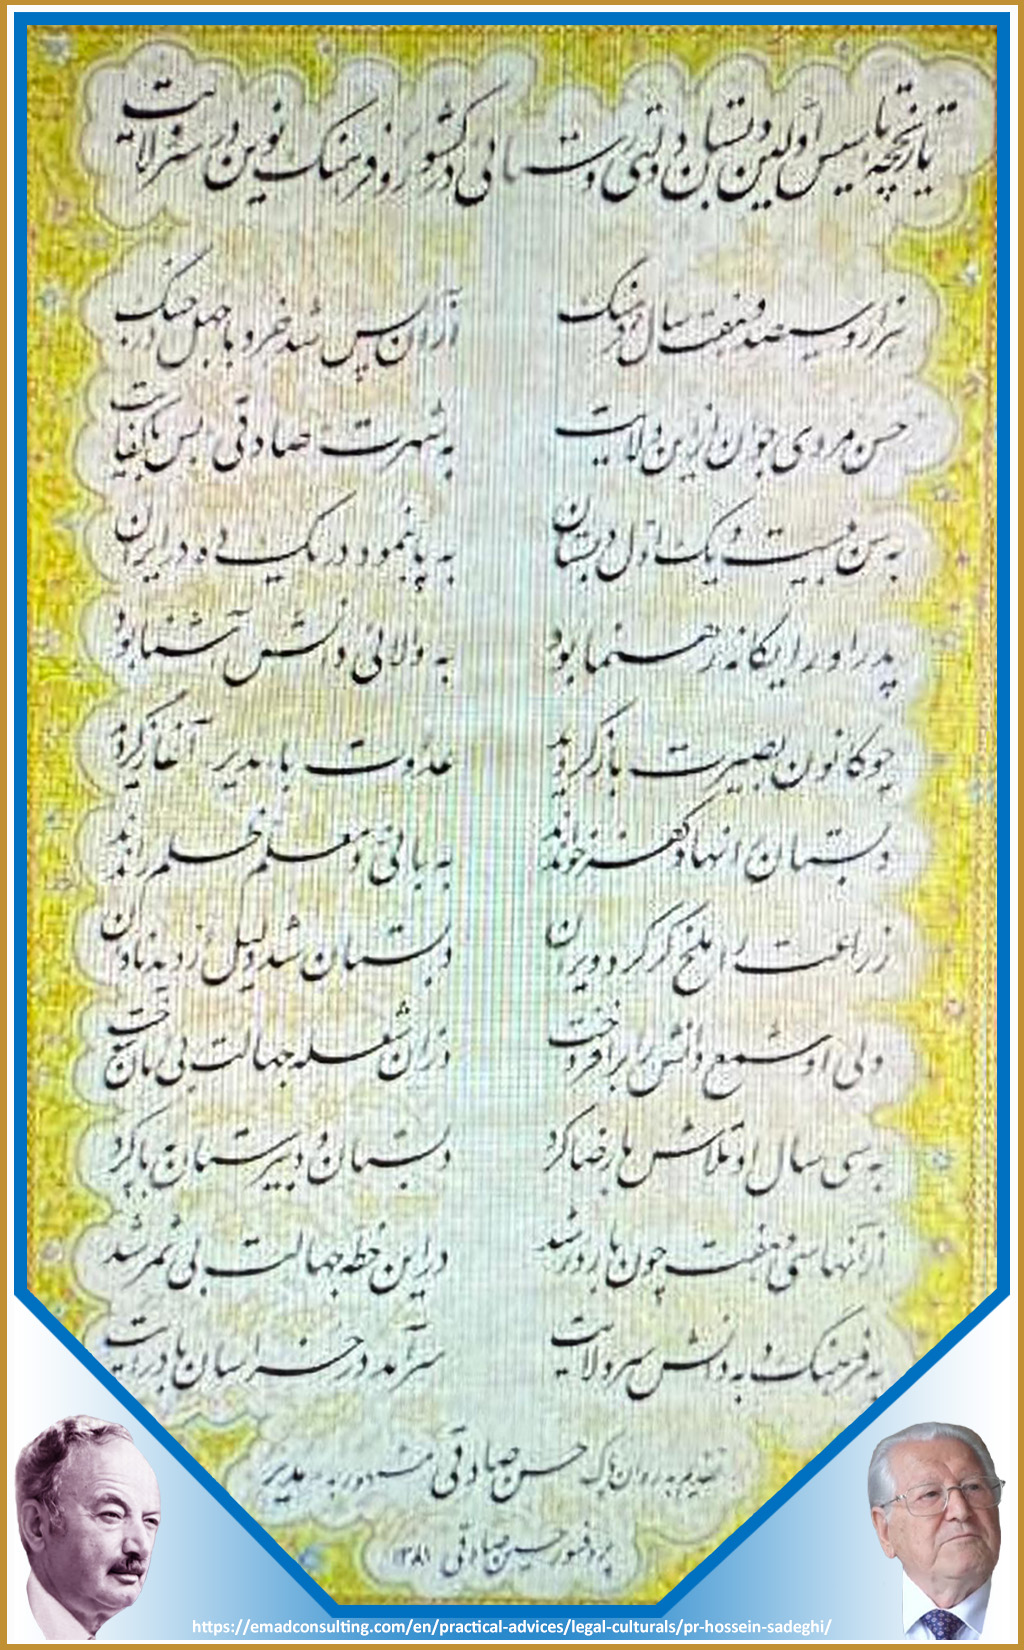 تاریخچه تاسیس اولین دبستان دولتی روستائی در کشور و فرهنگ نوین در سرولایت
هزار و سیصد و هفت سال فرهنگ از آن پس شد خرد با جهل در جنگ
حسن مردی جوان از این ولایت به شهرت صادقی بس با کفایت
به سن بیست و یک اول دبستان به پا بنمود در یک ده در ایران
پدر او را یگانه رهنما بود به والائی دانش آشنا بود
چو کانون بصیرت باز کردند عداوت با مدیر آغاز کردند
دبستان انهاد کفر خواندند به بانی و معلم ظلم راندند
زراعت را ملخ گر کرد ویران دبستان شد دلیل از دید نادان
ولی او شمع دانش را برافروخت در آن شعله جهالت بی امان سوخت
به سی سال او تلاش ها رضا کرد دبستان و دبیرستان به پا کرد
از آنها سی و هفت چون بارور شد در این خطه جهالت بی ثمر شد
به فرهنگ و به دانش سرولایت سرآمد در خراسان با درایت
تقدیم به روان پاک حسن صادقی مشهور به مدیر
پروفسور حسین صادقی ۱۳۸۱
https://emadconsulting.com/en/practical-advices/legal-culturals/pr-hossein-sadeghi/